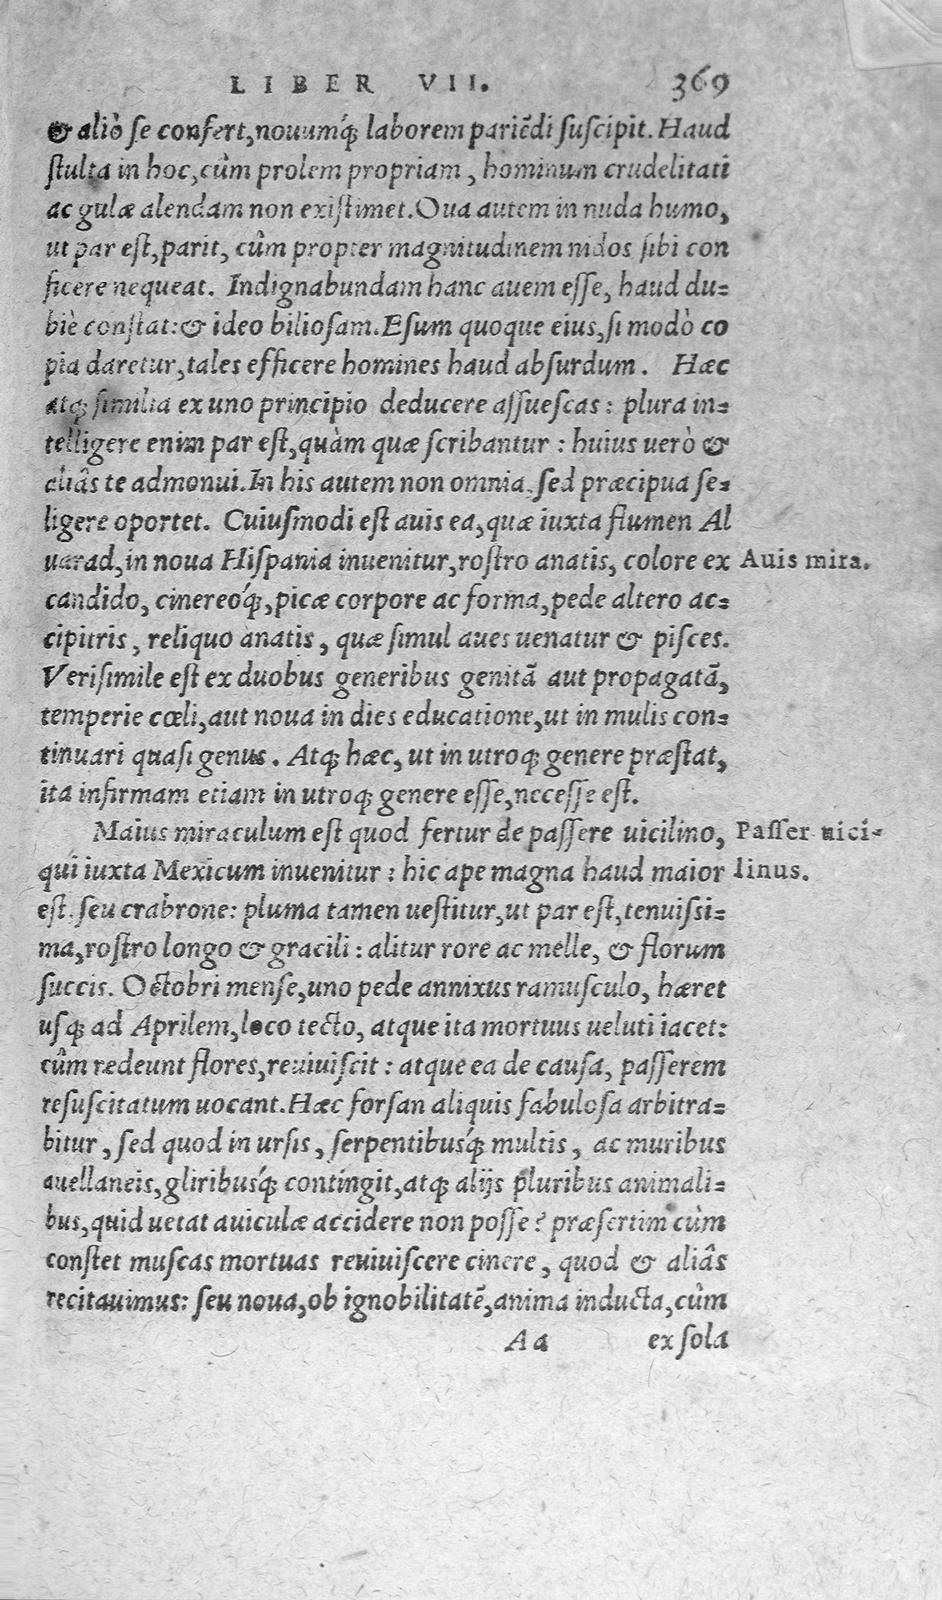 LIBER VII. 369
& aliò se confert, nouumq́; laborem pariẽdi suscipit. Haud
stulta in hoc, cùm prolem propriam, hominum crudelitati
ac gulæ alendam non existimet. Oua autem in nuda humo,
ut par est, parit, cùm propter magnitudinem nidos sibi con
ficere nequeat. Indignabundam hanc auem esse, haud du-
biè constat: & ideo biliosam. Esum quoque eius, si modò co
pia daretur, tales efficere homines haud absurdum. Hæc
atq; similia ex uno principio deducere assuescas: plura in-
telligere enim par est, quàm quæ scribantur: huius uerò &
aliâs te admonui. In his autem non omnia, sed præcipua se-
ligere oportet. Cuiusmodi est auis ea, quæ iuxta flumen Al
uarad, in noua Hispania inuenitur, rostro anatis, colore ex Auis mira.
candido, cinereoq́;, picæ corpore ac forma, pede altero ac-
cipitris, reliquo anatis, quæ simul aues uenatur & pisces.
Verisimile est ex duobus generibus genitã aut propagatã,
temperie cœli, aut noua in dies educatione, ut in mulis con-
tinuari quasi genus. Atq; hæc, ut in utroq; genere præstat,
ita infirmam etiam in utroq; genere esse, necesse est.
Maius miraculum est quod fertur de passere uicilino, Passer uici-
qui iuxta Mexicum inuenitur: hic ape magna haud maior linus.
est, seu crabrone: pluma tamen uestitur, ut par est, tenuissi-
ma, rostro longo & gracili: alitur rore ac melle, & florum
succis. Octobri mense, uno pede annixus ramusculo, hæret
usq; ad Aprilem, loco tecto, atque ita mortuus ueluti iacet:
cùm redeunt flores, reuiuiscit: atque ea de causa, passerem
resuscitatum uocant. Hæc forsan aliquis fabulosa arbitra-
bitur, sed quod in ursis, serpentibusq́; multis, ac muribus
auellaneis, gliribusq́; contingit, atq; alijs pluribus animali-
bus, quid uetat auiculæ accidere non posse? præsertim cùm
constet muscas mortuas reuiuiscere cinere, quod & aliâs
recitauimus: seu noua, ob ignobilitatẽ, anima inducta, cùm
Aa ex sola